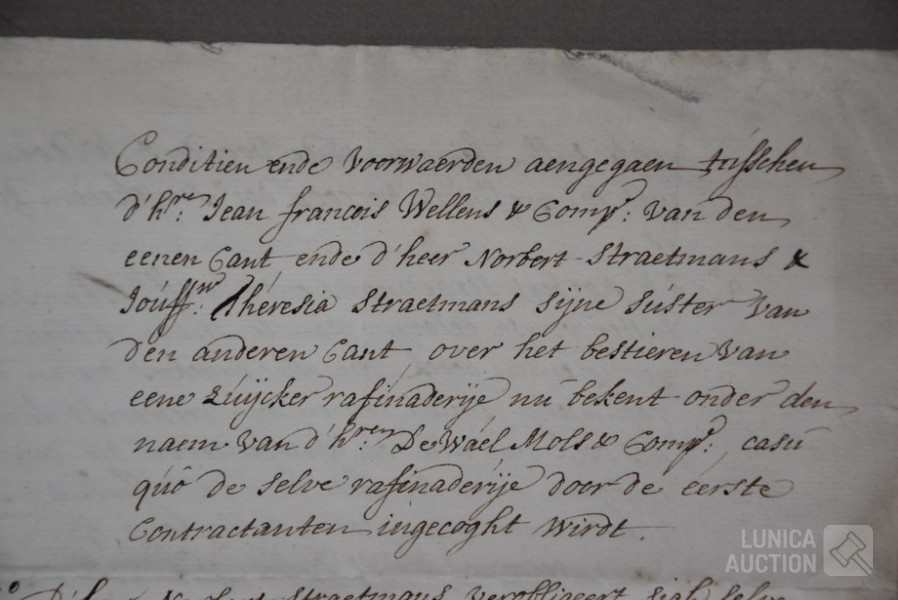 Conditien ende Voorwaerden aengegaen tússchen
d'hren: Jean francois Wellens & Compe: van den
eenen Cant ende d'heer Norbert Straetmans &
Joúffw: Théresia Straetmans sijne súster van
den anderen Cant, over het bestieren van
eene Zúijcker rafinaderije nú bekent onder den
naem van d'hren: De Wáel Mols & Compe: casú
qúo de selve rafinaderije door de eerste
Contractanten ingecoght wirdt.
Norbert Straetmans verobligeert sigh selve
LUNICA
AUCTION